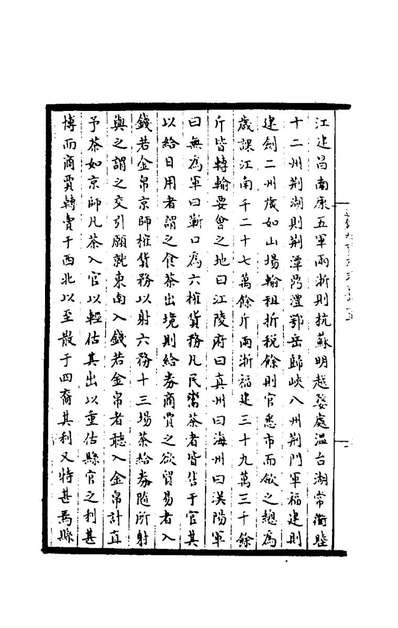 江建昌南康五軍兩浙則杭蘇明越婺處溫台湖常衢睦
十二州荆湖則荆潭澧鄂岳歸峽八州荆門軍福建則
建劍二州歲如山場輸租折稅餘則官悉市而歛之總為
歲課江南千二十七萬餘斤兩浙福建三十九萬三千餘
斤皆轉輸要會之地曰江陵府曰真州曰海州曰漢陽軍
曰無為軍曰蘄口為六榷貨務凡民鬻茶者皆售于官其
以給日用者謂之食茶出境則給券商賈之欲貿易者入
錢若金帛京師榷貨務以射六務十三場茶給券隨所射
與之謂之交引願就東南入錢若金帛者聽入金帛計直
予茶如京師凡茶入官以輕估其出以重估縣官之利甚
博而商賈轉賣于西北以至散于四裔其利又特甚焉縣